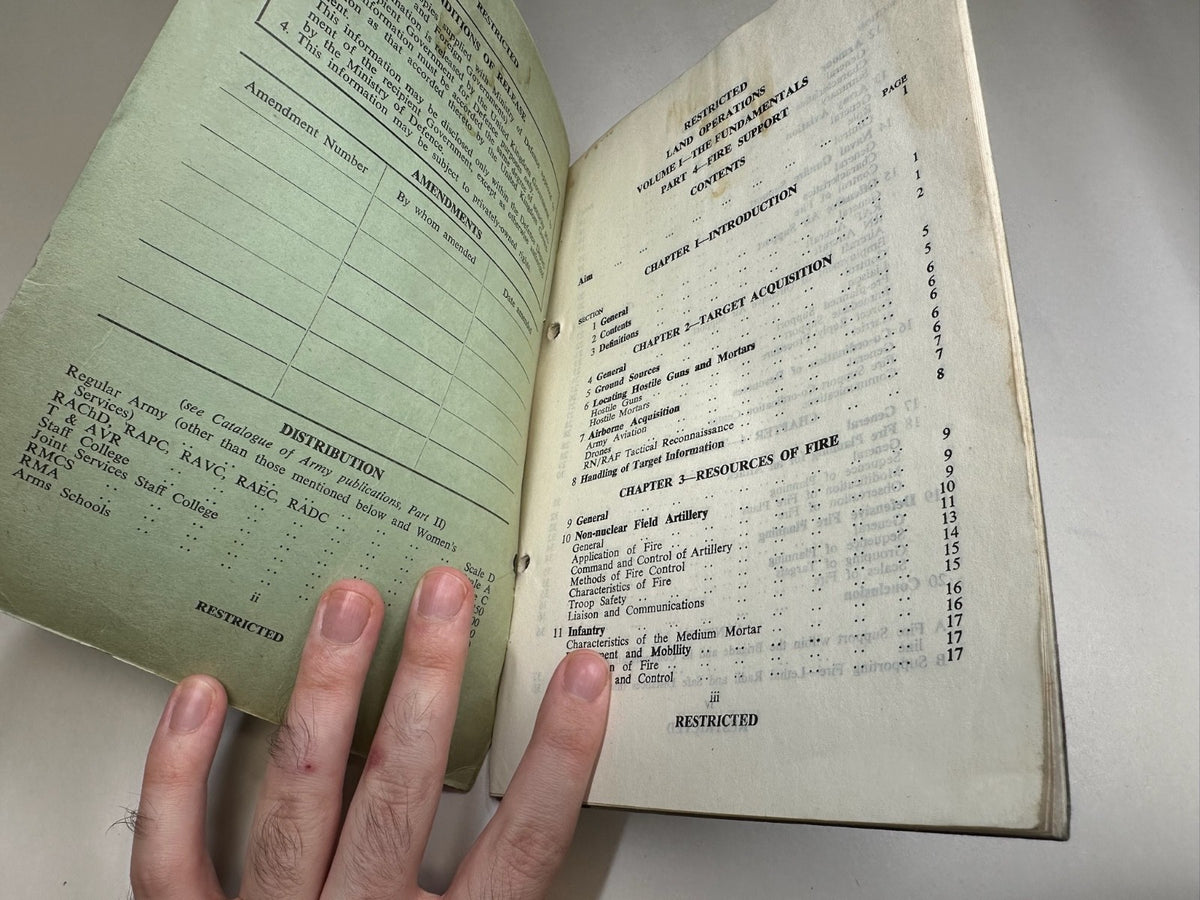 RESTRICTED
CONDITIONS OF RELEASE
This information may be disclosed only within the Defence Depart-
ment of the recipient Government, except as otherwise authorized
by the Ministry of Defence.
4. This information may be subject to privately-owned rights.
AMENDMENTS
Amendment Number
By whom amended
Date amended
DISTRIBUTION
(see Catalogue of Army publications, Part II)
Regular Army (other than those mentioned below and Women's
Services) .. .. .. .. .. Scale D
RAChD, RAPC, RAVC, RAEC, RADC
T & AVR
Staff College
Joint Services Staff College
RMCS
RMA
Arms Schools
ii
RESTRICTED
RESTRICTED
LAND OPERATIONS
VOLUME I—THE FUNDAMENTALS
PART 4—FIRE SUPPORT
CONTENTS
PAGE
Aim 1
CHAPTER 1—INTRODUCTION
SECTION
1 General 1
2 Contents 1
3 Definitions 2
CHAPTER 2—TARGET ACQUISITION
4 General 5
5 Ground Sources 5
6 Locating Hostile Guns and Mortars 6
Hostile Guns 6
Hostile Mortars 6
7 Airborne Acquisition 6
Army Aviation 6
Drones 7
RN/RAF Tactical Reconnaissance 7
8 Handling of Target Information 8
CHAPTER 3—RESOURCES OF FIRE
9 General 9
10 Non-nuclear Field Artillery 9
General 9
Application of Fire 10
Command and Control of Artillery 11
Methods of Fire Control 13
Characteristics of Fire 14
Troop Safety 15
Liaison and Communications 15
11 Infantry 16
Characteristics of the Medium Mortar 16
ent and Mobility 17
n of Fire 17
and Control 17
iii
RESTRICTED